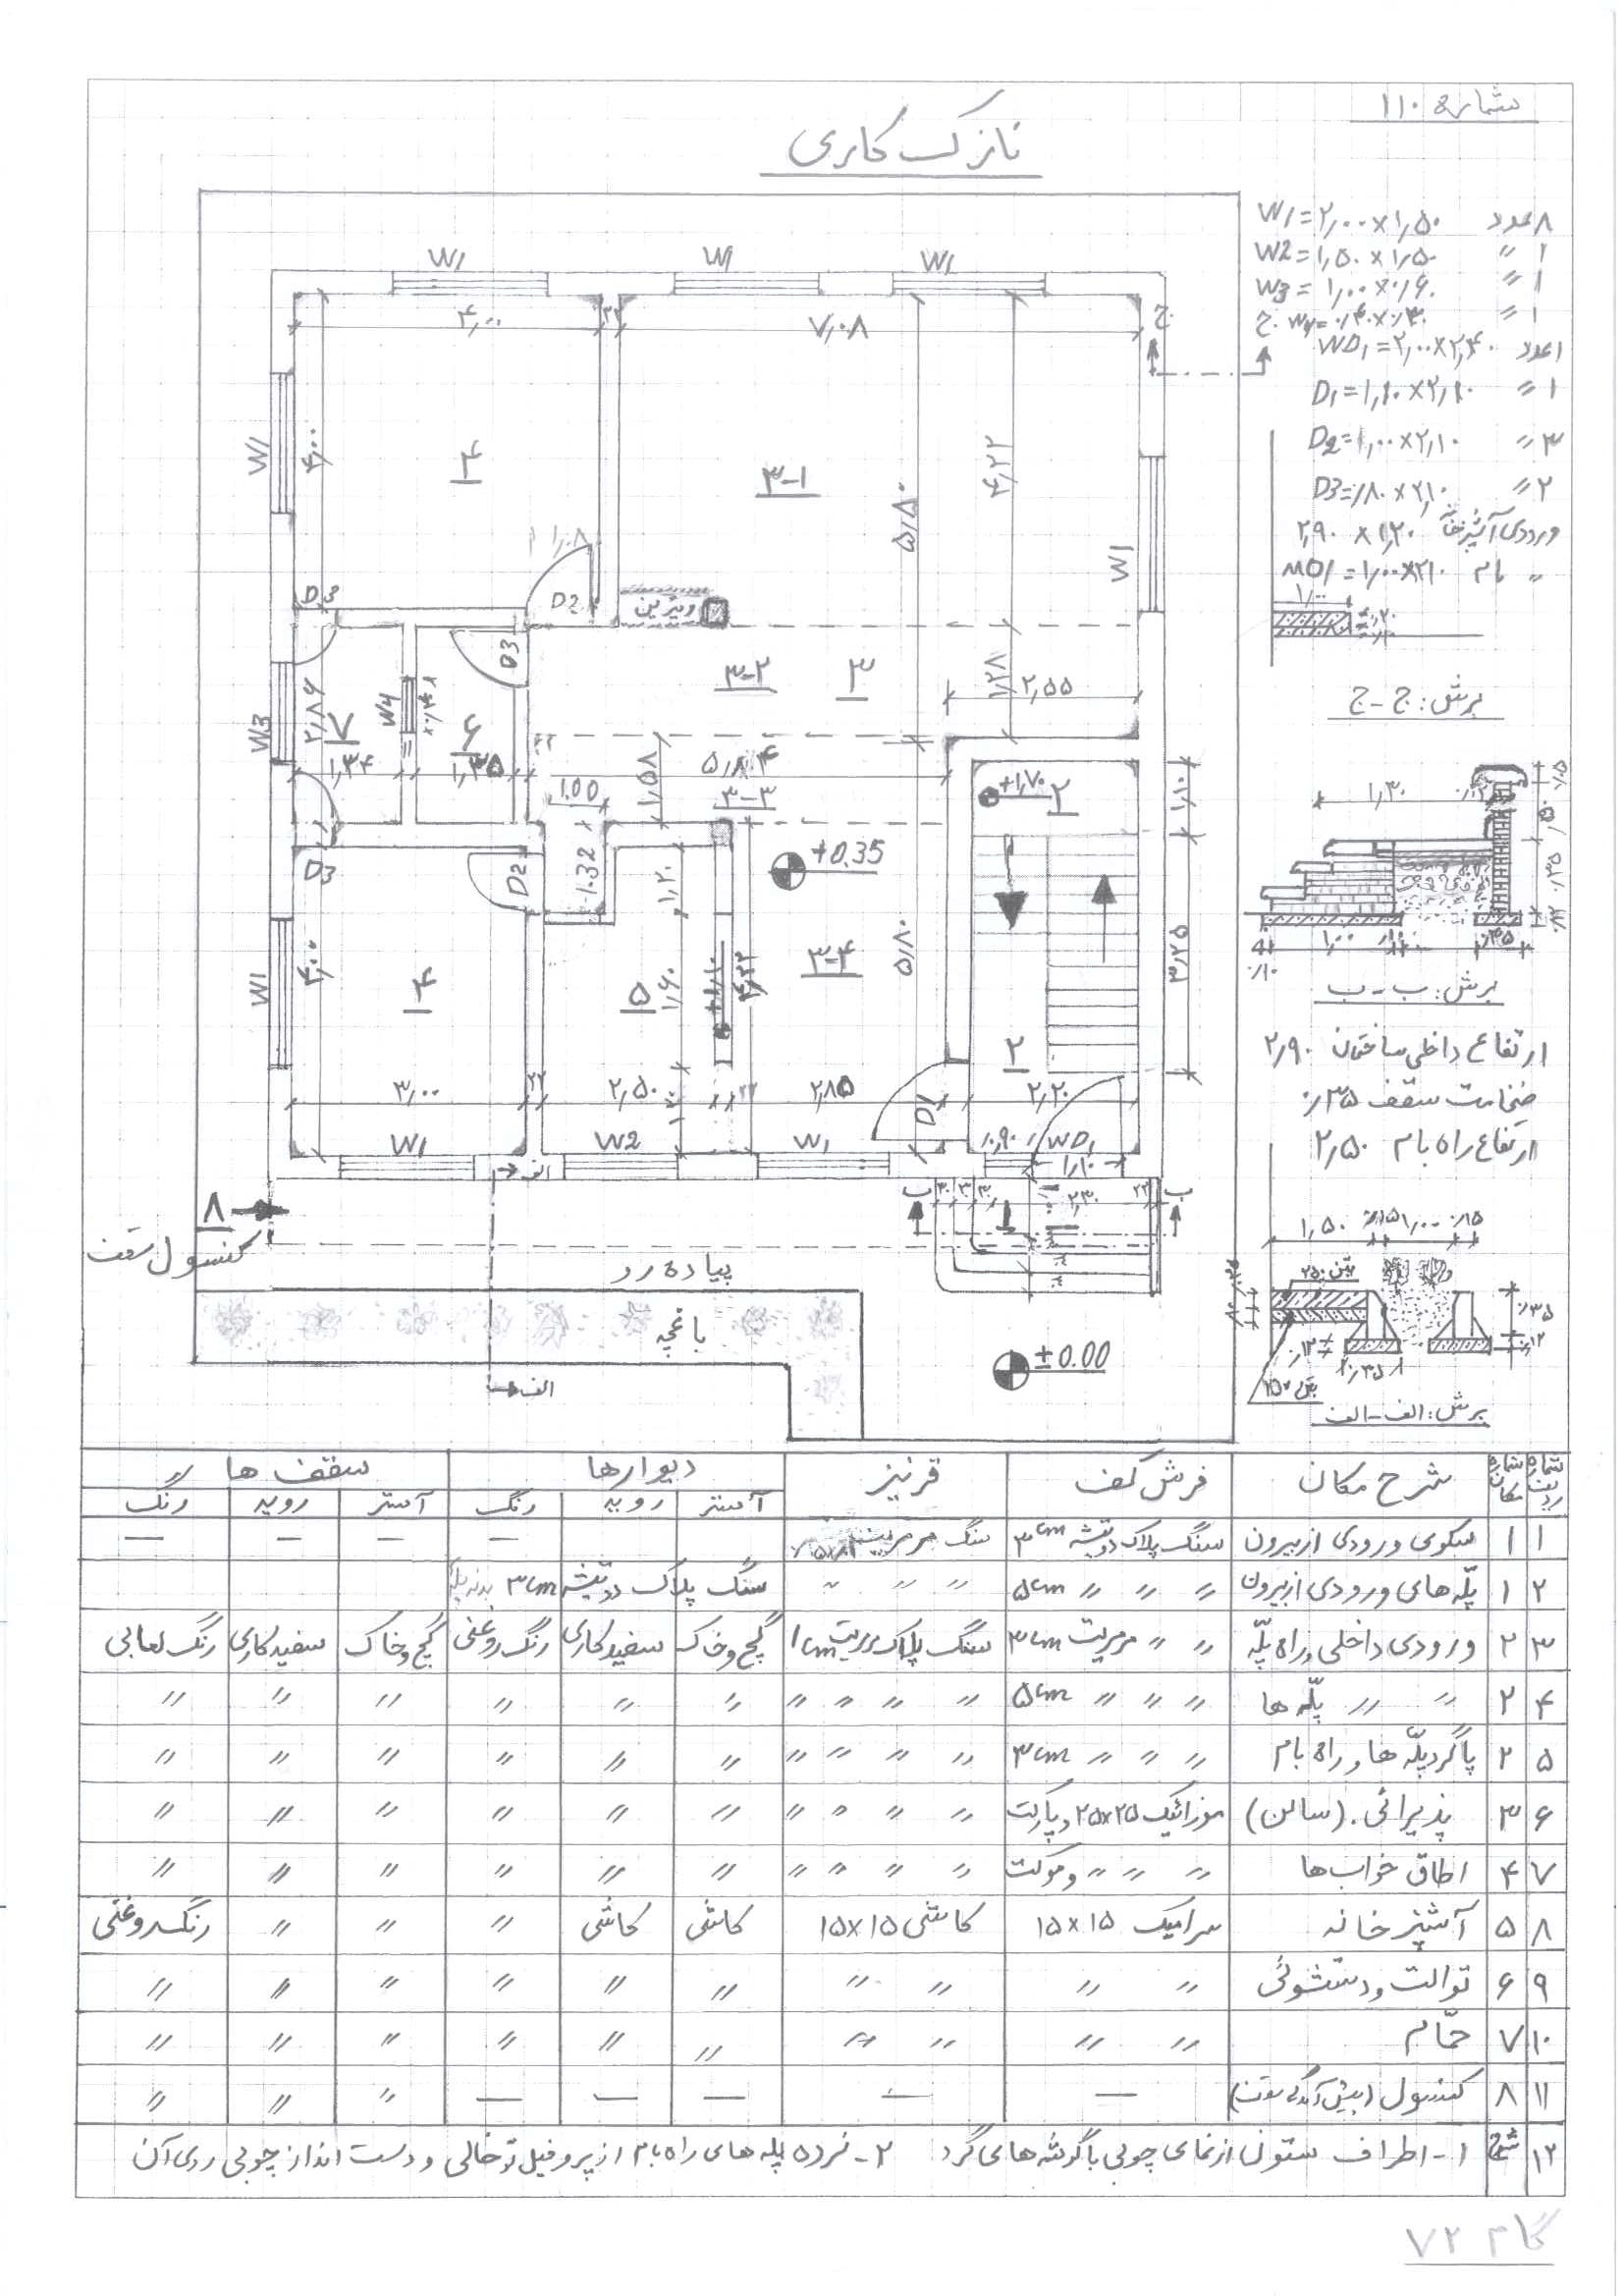 شماره ۱۱۰
نازک کاری
W1=۲٫۰۰×۱٫۵۰ ۸ عدد
W2=۱٫۵۰×۱٫۵۰ ۱ "
W3=۱٫۰۰×۰٫۶۰ ۱ "
W4=۰٫۴۰×۰٫۳۰ ۱ "
WD1=۲٫۰۰×۲٫۴۰ ۱ عدد
D1=۱٫۱۰×۲٫۱۰ ۱ "
D2=۱٫۰۰×۲٫۱۰ ۳ "
D3=۰٫۸۰×۲٫۱۰ ۲ "
ورودی آشپزخانه ۱٫۲۰×۲٫۹۰
" بام MD1=۱٫۰۰×۲٫۱۰
۱٫۰۰
برش: ج-ج
۱٫۳۰
۱٫۰۰
برش: ب-ب
ارتفاع داخلی ساختمان ۲٫۹۰
ضخامت سقف ۰٫۳۵
ارتفاع راه بام ۲٫۵۰
۱٫۵۰ ۰٫۱۵ ۱٫۰۰ ۰٫۱۵
بتن ۲۵۰
بتن ۱۵۰
برش: الف-الف
W1 W1 W1
۴٫۰۰ ۲۲ ۷٫۰۸ ج
W1 ۴٫۰۰ ۴ ۳-۱ ۵٫۸۰ ۴٫۲۲ W1
۱٫۰۸
D3 D2 ویترین
D3 ۳-۲ ۳ ۱٫۲۸ ۲٫۵۵
W3 ۲٫۸۶ ۷ W4 ۶
۱٫۳۴ ۱٫۳۵ ۲۲ ۱٫۵۸ ۵٫۸۴ +۱٫۷۰ ۲ ۱٫۱۰
1.00 ۳-۳
D3 D2 1.32 ۱٫۲۰ +0.35
W1 ۴٫۰۰ ۴ ۵ ۱٫۶۰ +۱٫۱۰ ۴٫۲۲ ۳-۴ ۵٫۸۰ ۳٫۲۵
۲
۳٫۰۰ ۲۲ ۲٫۵۰ ۲۲ ۲٫۸۵ D1 ۲٫۲۰
W1 W2 W1 ۰٫۹۰ WD1
۱٫۱۰
الف
۸ ب ۳۰ ۳۰ ۳۰ ۱ ۲٫۳۰ ۲۲ ب
کنسول سقف
پیاده رو
باغچه
±0.00
الف
شماره ردیف شماره مکان شرح مکان فرش کف قرنیز دیوارها سقف ها "
آستر رویه رنگ آستر رویه رنگ
۱ ۱ سکوی ورودی از بیرون سنگ پلاک دوتیشه ۳cm سنگ مرمریت — — — —
۲ ۱ پلّه های ورودی از بیرون " " " ۵cm " " " سنگ پلاک دوتیشه ۳cm بدنه پله
۳ ۲ ورودی داخلی و راه پلّه " " مرمریت ۳cm سنگ پلاک مرمریت ۱cm گچ و خاک سفیدکاری رنگ روغنی گچ و خاک سفیدکاری رنگ لعابی
۴ ۲ " " پلّه ها " " " ۵cm " " " " " " " " " "
۵ ۲ پاگرد پلّه ها و راه بام " " " ۳cm " " " " " " " " " "
۶ ۳ پذیرائی. (سالن) موزائیک ۲۵×۲۵ و پارکت " " " " " " " " " "
۷ ۴ اطاق خواب ها " " " و موکت " " " " " " " " " "
۸ ۵ آشپزخانه سرامیک ۱۵×۱۵ کاشی ۱۵×۱۵ کاشی کاشی " " " رنگ روغنی
۹ ۶ توالت و دستشوئی " " " " " " " " " "
۱۰ ۷ حمّام " " " " " " " " " "
۱۱ ۸ کنسول (پیش آمدگی سقف) — — — — — " " "
۱۲ ۱- اطراف ستون از نمای چوبی با گوشه های گرد ۲- نرده پله های راه بام از پروفیل توخالی و دست انداز چوبی روی آن
گام ۷۲